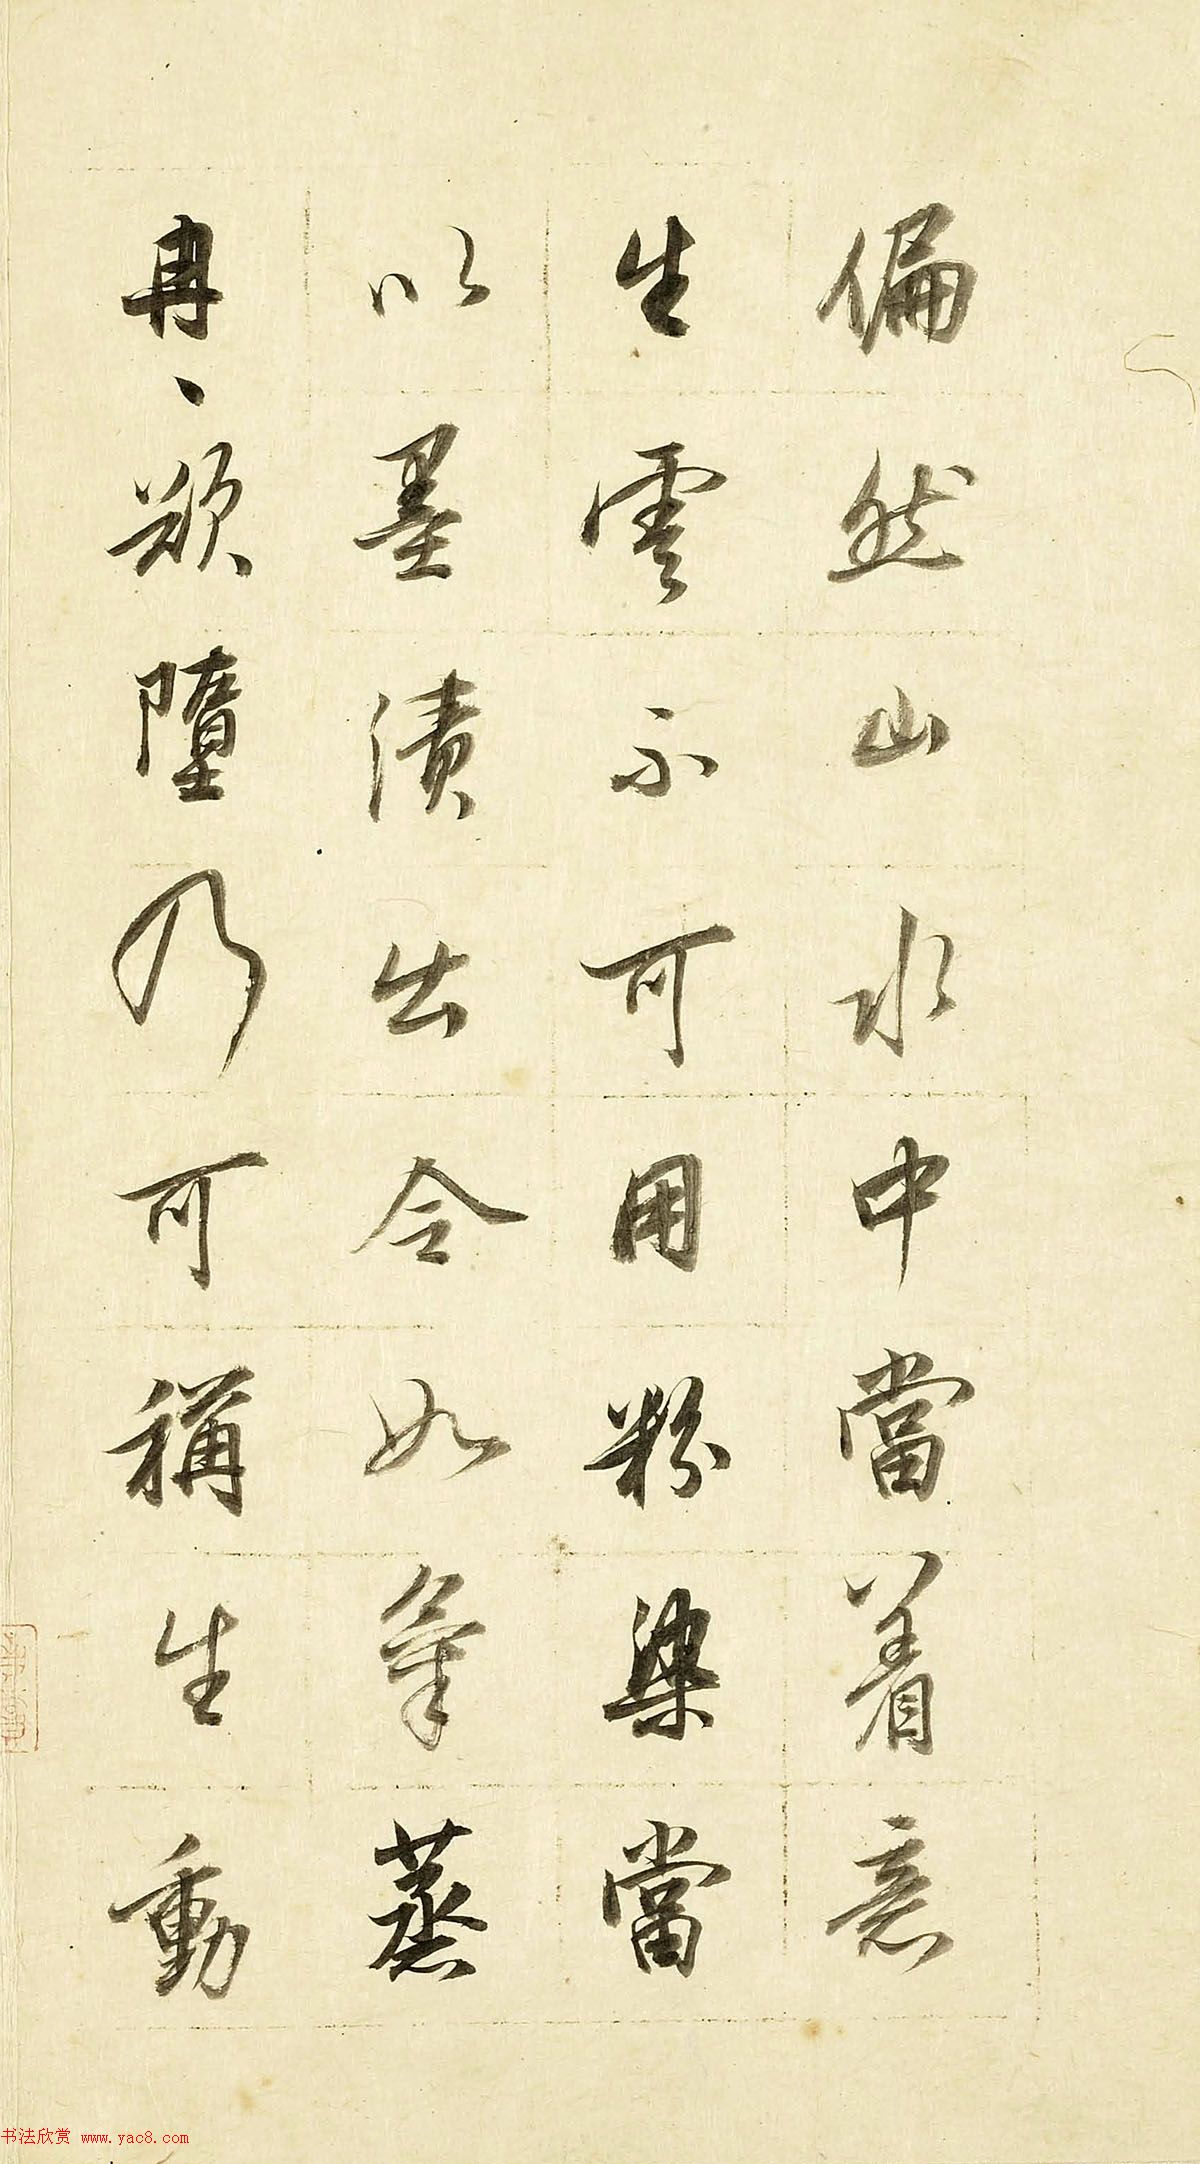 偏然山水中當着意
生雲不可用粉染當
以墨漬出令如氣蒸
冉〻欲墮乃可稱生動
书法欣赏 www.yac8.com